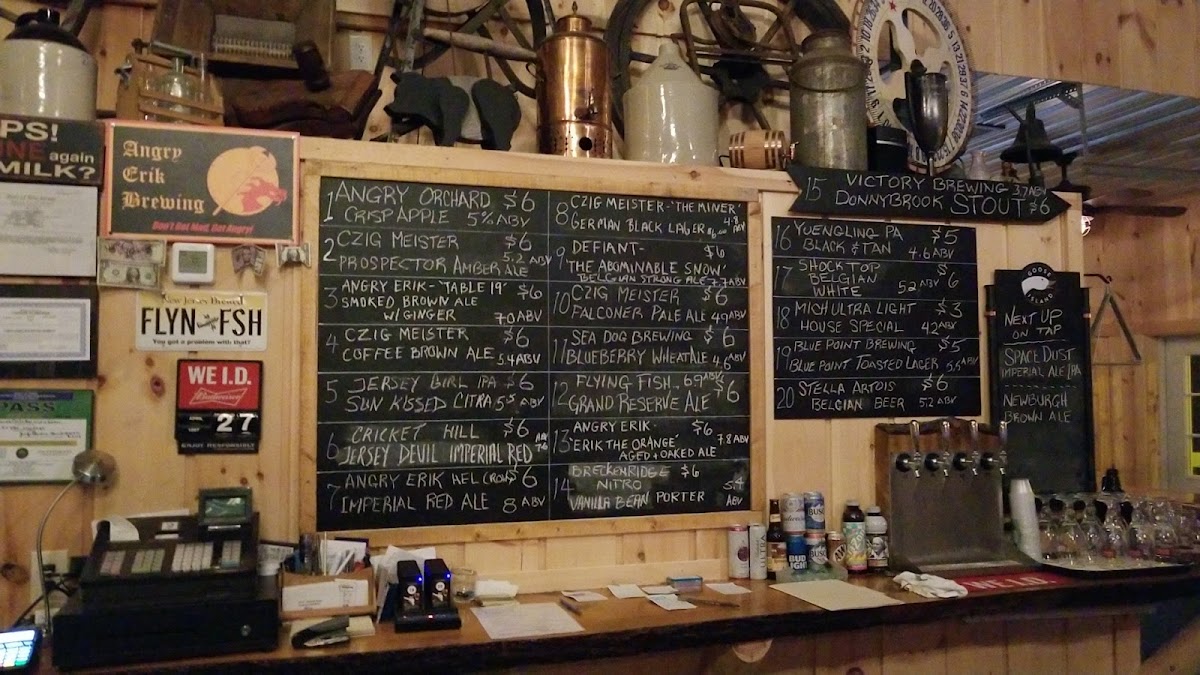 PS!
again
MILK?
Angry
Erik
Brewing
Don't Get Mad, Get Angry!
New Jersey Brewed
FLYN FSH
You got a problem with that?
WE I.D.
Budweiser
27
ENJOY RESPONSIBLY
PASS
1 ANGRY ORCHARD $6
CRISP APPLE 5% ABV
2 CZIG MEISTER $6
PROSPECTOR AMBER ALE 5.2 ABV
3 ANGRY ERIK-'TABLE 19' $6
SMOKED BROWN ALE
W/GINGER 7.0 ABV
4 CZIG MEISTER $6
COFFEE BROWN ALE 5.4 ABV
5 JERSEY GIRL IPA $6
SUN KISSED CITRA 5.5 ABV
6 CRICKET HILL $6
JERSEY DEVIL IMPERIAL RED
7 ANGRY ERIK HEL (ROSE) $6
IMPERIAL RED ALE 8 ABV
8 CZIG MEISTER-'THE MINER'
GERMAN BLACK LAGER $6 4.8 ABV
9 DEFIANT- $6
'THE ABOMINABLE SNOW'
BELGIAN STRONG ALE 7.7 ABV
10 CZIG MEISTER $6
FALCONER PALE ALE 4.9 ABV
11 SEA DOG BREWING $6
BLUEBERRY WHEAT ALE 4.6 ABV
12 FLYING FISH 6.9 ABV
GRAND RESERVE ALE $6
13 ANGRY ERIK- $6
'ERIK THE ORANGE' 7.8 ABV
AGED + OAKED ALE
14 BRECKENRIDGE $6
NITRO 5.4
VANILLA BEAN PORTER ABV
15 VICTORY BREWING 3.7 ABV
DONNYBROOK STOUT $6
16 YUENGLING PA $5
BLACK & TAN 4.6 ABV
17 SHOCK TOP $6
BELGIAN
WHITE 5.2 ABV
18 MICH ULTRA LIGHT $3
HOUSE SPECIAL 4.2 ABV
19 BLUE POINT BREWING $5
BLUE POINT TOASTED LAGER 5.5 ABV
20 STELLA ARTOIS $6
BELGIAN BEER 5.2 ABV
GOOSE
ISLAND
NEXT UP
ON TAP
SPACE DUST
IMPERIAL ALE/IPA
NEWBURGH
BROWN ALE
BUD
LIGHT
BUSCH
WE I.D.